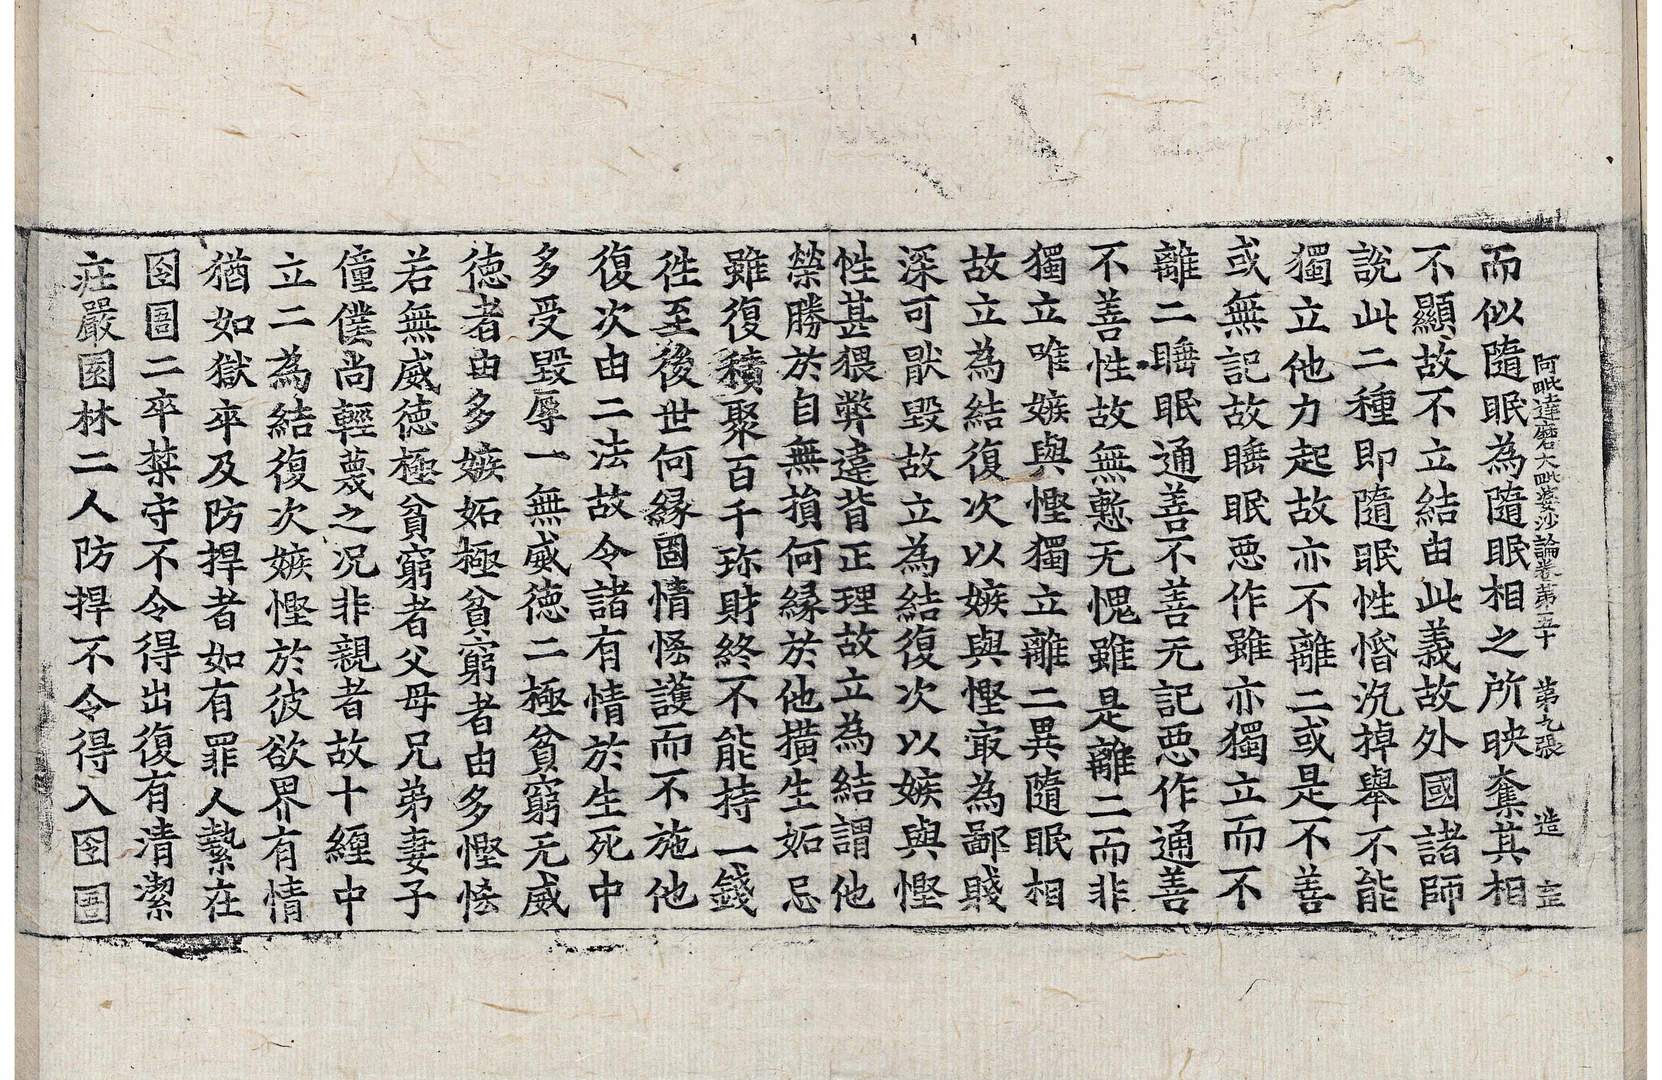 阿毗達磨大毗婆沙論卷第五十 第九張 造
而似隨眠為隨眠相之所映奪其相
不顯故不立結由此義故外國諸師
說此二種即隨眠性惛沉掉舉不能
獨立他力起故亦不離二或是不善
或無記故睡眠惡作雖亦獨立而不
離二睡眠通善不善无記惡作通善
不善性故無慙无愧雖是離二而非
獨立唯嫉與慳獨立離二異隨眠相
故立為結復次以嫉與慳㝡為鄙賤
深可猒毀故立為結復次以嫉與慳
性甚猥弊違背正理故立為結謂他
榮勝於自無損何緣於他撗生妬忌
雖復積聚百千珎財終不能持一錢
徃至後世何緣固惜悋護而不施他
復次由二法故令諸有情於生死中
多受毀辱一無威德二極貧窮无威
德者由多嫉妬極貧窮者由多慳悋
若無威德極貧窮者父母兄弟妻子
僮僕尚輕蔑之况非親者故十纏中
立二為結復次嫉慳於彼欲界有情
猶如獄卒及防捍者如有罪人縶在
囹圄二卒禁守不令得出復有清潔
莊嚴園林二人防捍不令得入囹圄